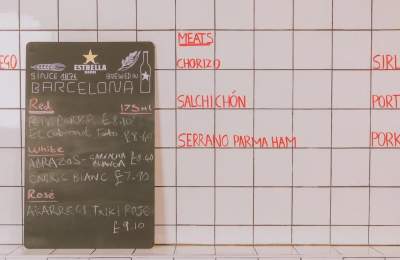 EGO
ESTRELLA
SINCE 1876
BREWED IN
BARCELONA
Red 175ml
£8.10
El £8.60
White
ABRAZOS - GARNACHA BLANCA £8.60
BLANC £7.90
Rosé
TXIKI ROJE
£9.10
MEATS
CHORIZO
SALCHICHÓN
SERRANO PARMA HAM
SIRL
PORT
PORK